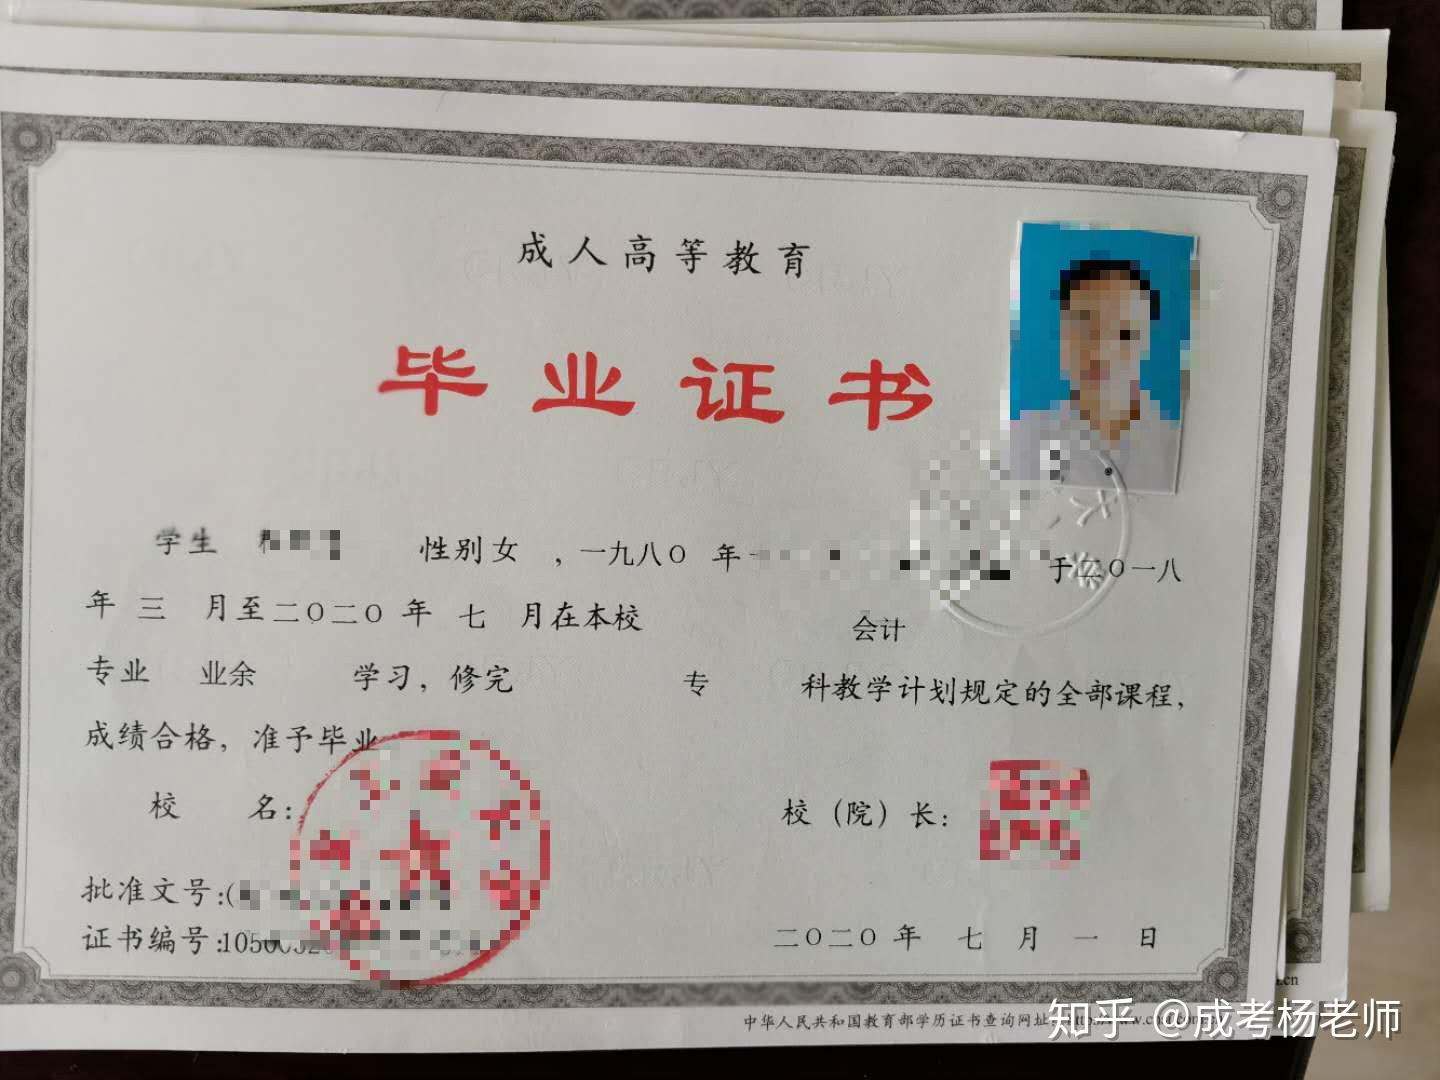 成人高等教育
毕业证书
学生 性别女 ，一九八〇 年 于二〇一八
年 三 月至二〇二〇 年 七 月在本校 会计
专业 业余 学习，修完 专 科教学计划规定的全部课程，
成绩合格，准予毕业
校 名： 校（院）长：
批准文号:(
证书编号: 二〇二〇 年 七 月 一 日
中华人民共和国教育部学历证书查询网址
知乎 @成考杨老师